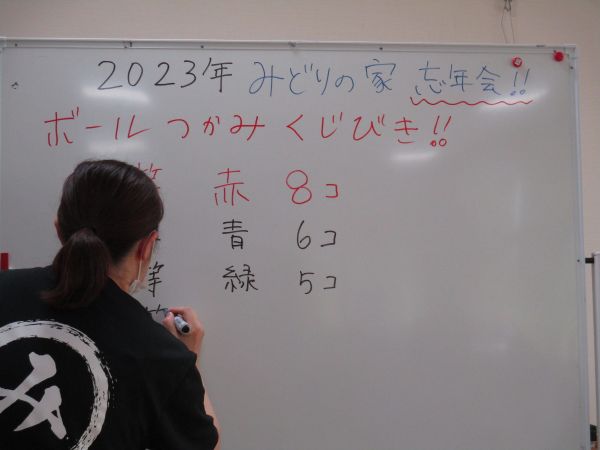 2023年 みどりの家 忘年会!!
ボールつかみ くじびき!!
等 赤 8コ
青 6コ
等 緑 5コ